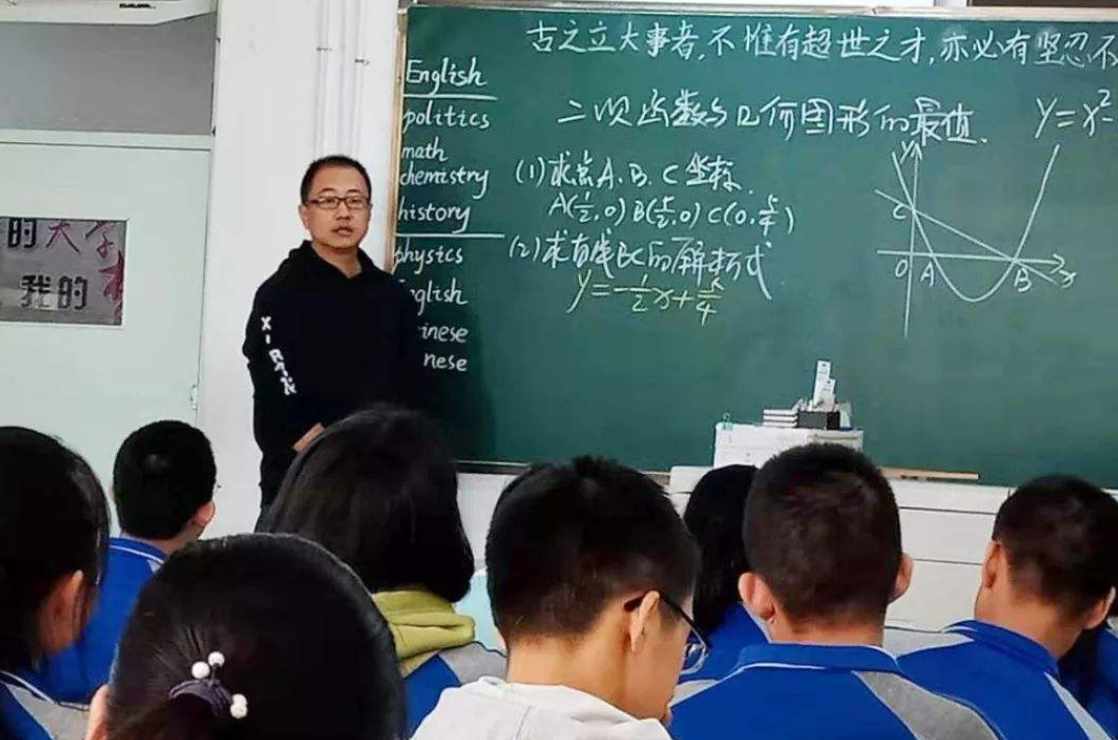 古之立大事者,不惟有超世之才,亦必有坚忍不
English
politics
math
chemistry
history
physics
glish
inese
nese
二次函数与几何图形的最值.
y=x²-
(1)求点A、B、C坐标.
A(1/2,0) B(5/2,0) C(0,5/4)
(2)求直线BC的解析式
y=-1/2x+5/4
y
C
O
A
B
x
的大学
我的